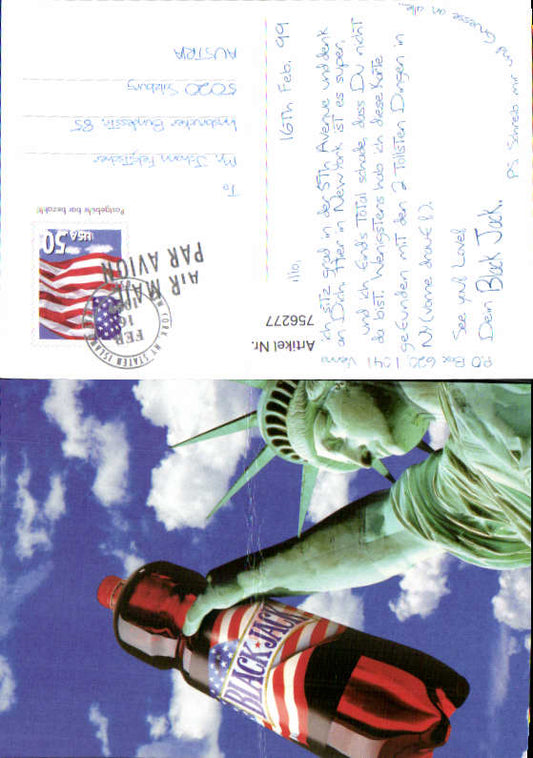 16th Feb. 99
Hio,
ich sitz grad in der 5th Avenue und denk
an Dich. Hier in New York ist es super,
und ich find's total schade, dass Du nicht
da bist. Wenigstens hab ich diese Karte
gefunden mit den 2 tollsten Dingen in
NY (vorne drauf!).
See you! Love!
Dein Black Jack.
PS Schreib mir und
Gruesse an alle...
P.O Box 620, 1041
Artikel Nr.
756277
USA 50
AIR MAIL
PAR AVION
FEB
16
NY STATEN ISLAND
Postgebühr bar bezahlt
To
Mr. Johann
Innsbrucker Bundesstr. 85
5020 Salzburg
AUSTRIA
BLACK JACK